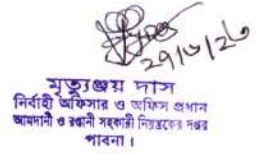 ২৭/৬/২৩
মৃত্যুঞ্জয় দাস
নির্বাহী অফিসার ও অফিস প্রধান
আমদানী ও রপ্তানী সহকারী নিয়ন্ত্রকের দপ্তর
পাবনা।